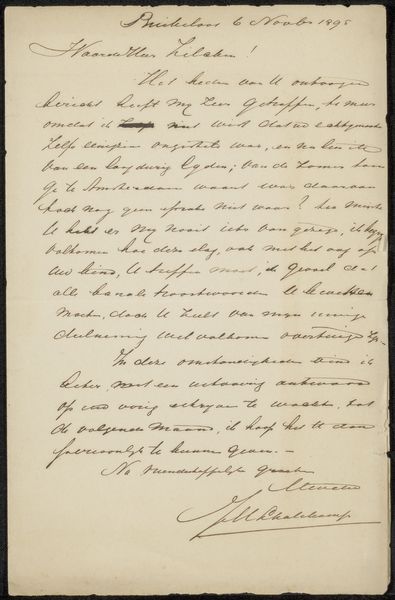 Buiksloot 6 Novber 1895
Waarde Heer Zilcken!
Het heden van U ontvangen
bericht heeft my zeer getroffen, te meer
omdat ik niet wist dat uwe echtgenoote
zelfs eenigzins ongesteld was, en nu
van een langdurig lyden; van de zomer toen
ge te Amsterdam waart was daarvan
toch nog geen sprake niet waar?
U hebt er my nooit iets van gezegd, ik begryp
volkomen hoe deze slag, ook met het oog op
uw kind, U treffen moet, ik gevoel dat
alle banale troostwoorden U
doch U zult van myn innige
deelneming wel volkomen overtuigd zyn.
In deze omstandigheden vind ik
beter, met een uitvoerig antwoord
op uw vorig schryven te wachten, tot
de volgende maand, ik hoop het U dan
te kunnen geven. —
Na vriendschappelyke groeten